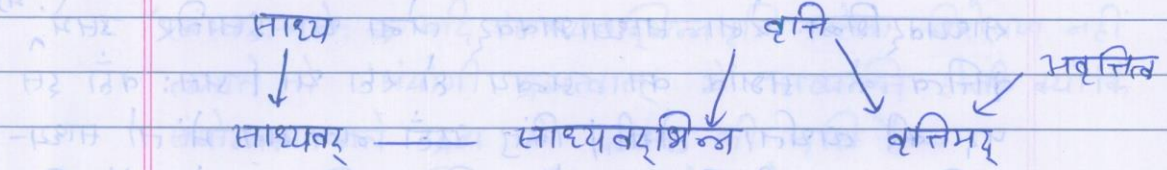 साध्य वृत्ति
अवृत्तित्व
साध्यवद् —— साध्यवद्भिन्न वृत्तिमद्